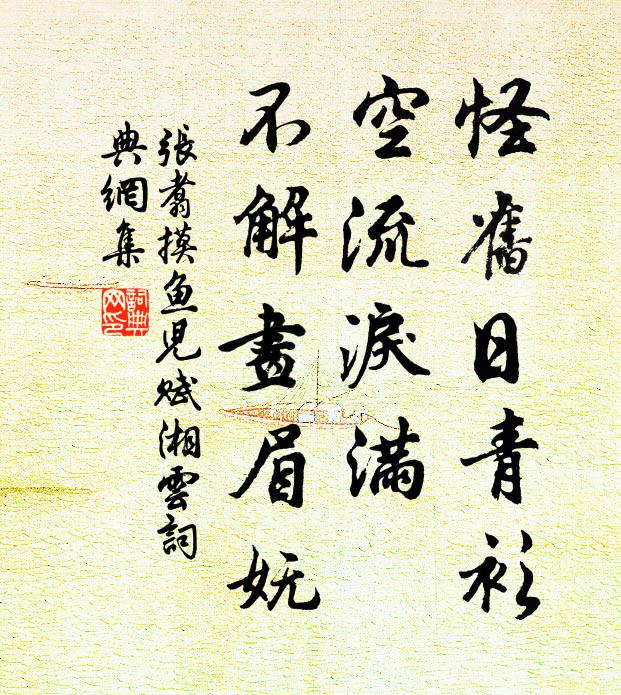 怪舊日青衫
空流淚滿
不解畫眉嫵
張翥摸魚兒賦湘雲詞
典網集
詞典網印